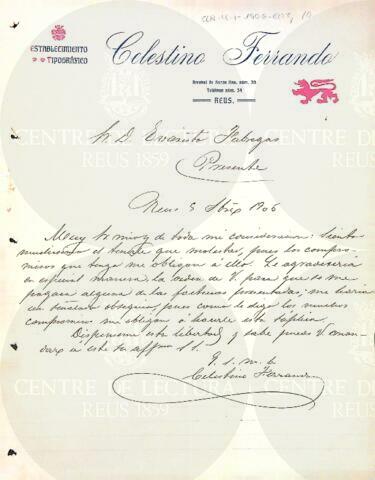 ESTABLECIMIENTO
TIPOGRÁFICO
Celestino Ferrando
Arrabal de Santa Ana, núm. 30
Teléfono núm. 54
REUS.
S. D. Evaristo Fabregas
Presente
Reus 5 1906
Muy Sr. mio y de toda mi consideracion: Siento
muchisimo el tenerle que molestar, pues los compro-
misos que tengo me obligan á ello. Le agradeceria
en especial manera la orden de V. para que se me
pagara alguna de las facturas presentadas; me haria
un señalado obsequio, pues como le digo los muchos
compromisos me obligan á hacerle esta súplica.
Dispénseme esta libertad y sabe puede V. man-
dar á este su affmo. S. S.
q. s. m. b.
Celestino Ferrando
CENTRE DE LECTURA
REUS 1859